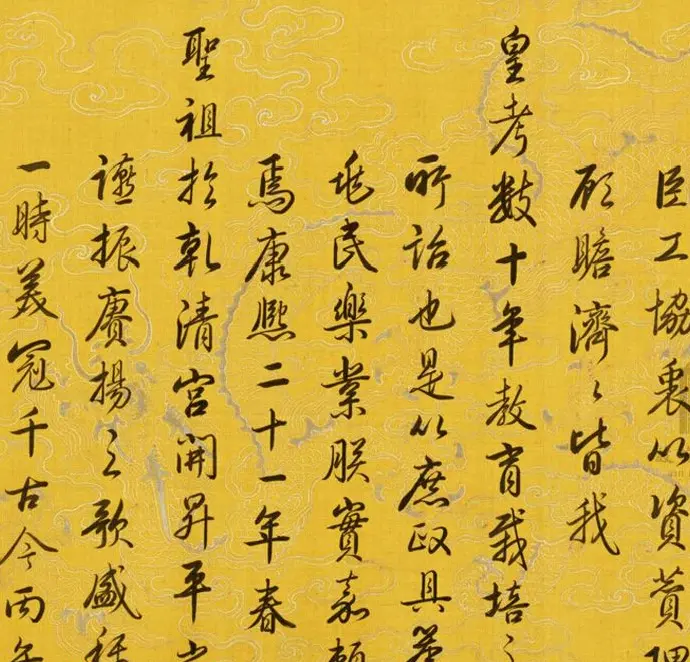 臣工協衷以資贊
顧瞻濟〻皆我
皇考数十年教育栽培之
所詒也是以庶政具
兆民樂業朕實嘉賴
焉康熈二十一年春
聖祖於乾清宮開昇平
讌振賡揚之歌盛
一時美冠千古今丙午